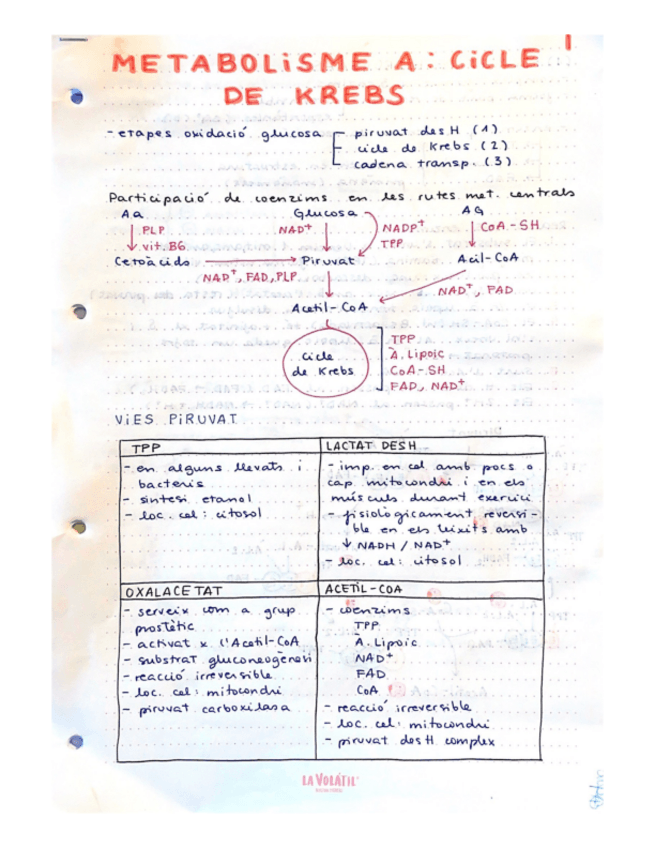 1
METABOLISME A: CICLE
DE KREBS
- etapes oxidació glucosa
piruvat desH (1)
cicle de Krebs (2)
cadena transp. (3)
Participació de coenzims en les rutes met. centrals
Aa Glucosa AG
PLP NAD+ NADP+ CoA-SH
vit. B6 TPP
Cetoàcids Piruvat Acil-CoA
NAD+, FAD, PLP NAD+, FAD
Acetil-CoA
Cicle
de Krebs
TPP
À. Lipoic
CoA-SH
FAD, NAD+
VIES PIRUVAT
TPP
- en alguns llevats i
bacteris
- síntesi etanol
- loc. cel: citosol
LACTAT DESH
- imp. en cel amb pocs o
cap mitocondri i en els
músculs durant exercici
- fisiològicament reversi-
ble en els teixits amb
↓ NADH / NAD+
- loc. cel: citosol
OXALACETAT
- serveix com a grup
prostètic
- activat x l'Acetil-CoA
- substrat gluconeogènesi
- reacció irreversible
- loc. cel: mitocondri
- piruvat carboxilasa
ACETIL-COA
- coenzims
TPP
À. Lipoic
NAD+
FAD
CoA
- reacció irreversible
- loc. cel: mitocondri
- piruvat desH complex
LA VOLÀTIL